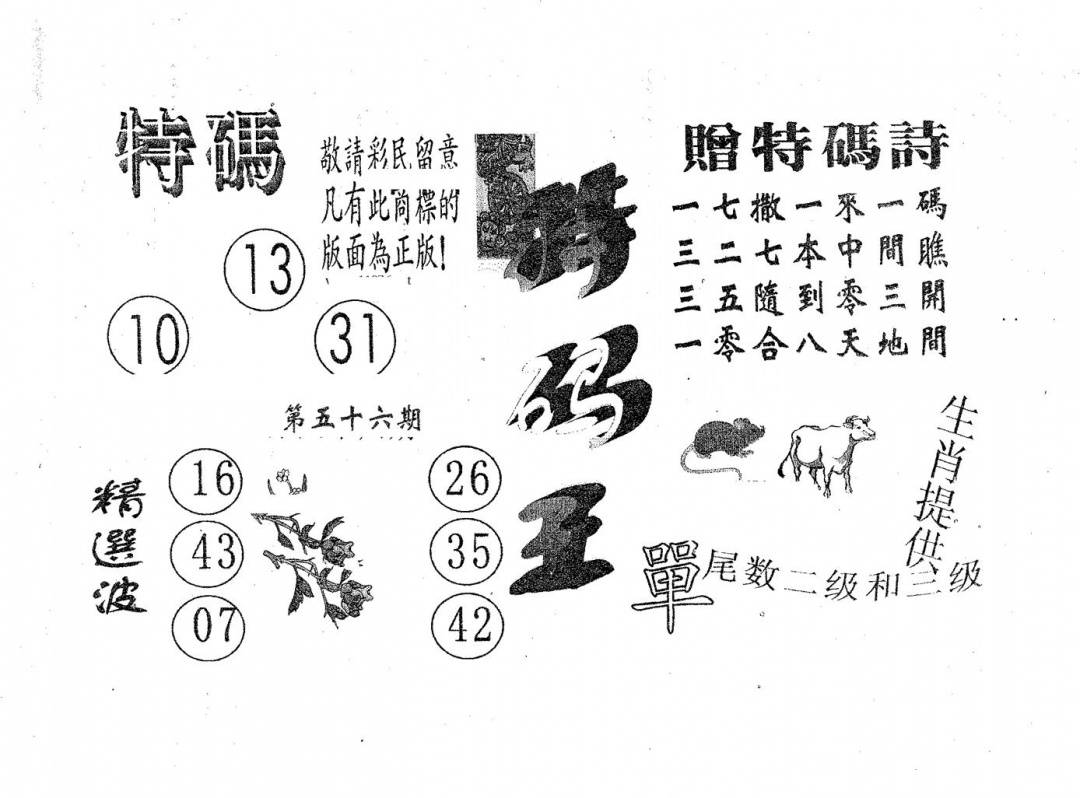 特碼
敬請彩民留意
凡有此商標的
版面為正版!
13
10
31
第五十六期
精選波
16
43
07
26
35
42
特码王
贈特碼詩
一七撒一來一碼
三二七本中間瞧
三五隨到零三開
一零合八天地間
生肖提供
單尾数二级和三级